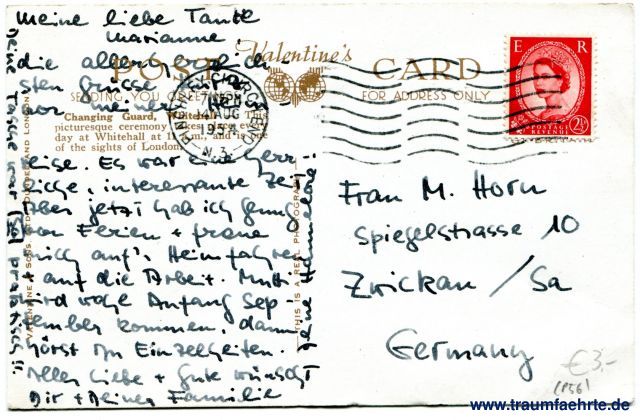 meine liebe Tante
Marianne
die allerherzlich
sten Grüsse
vor
Reise. Es war eine herr-
liche, interessante Zeit
Aber jetzt hab ich genug
von Ferien + freue
mich auf's Heimfahren
+ auf die Arbeit. Mutti
wird wohl Anfang Sep-
tember kommen, dann
hörst Du Einzelheiten.
Alles Liebe + Gute wünscht
Dir + Deiner Familie
Deine Hannelore
neue Tasche war praktisch!!
POST Valentine's CARD
SENDING YOU GREETINGS
FOR ADDRESS ONLY
Changing Guard, Whitehall. This
picturesque ceremony takes place every
day at Whitehall at 11 a.m., and is one
of the sights of London.
VALENTINE & SONS, LTD., DUNDEE AND LONDON
THIS IS A REAL PHOTOGRAPH
FINCHLEY CHURCH END
PM
14 AUG
1954
N.3.
E R
POSTAGE
REVENUE
2½
Frau M. Horn
Spiegelstrasse 10
Zwickau / Sa
Germany
€3,-
(P56)
www.traumfaehrte.de